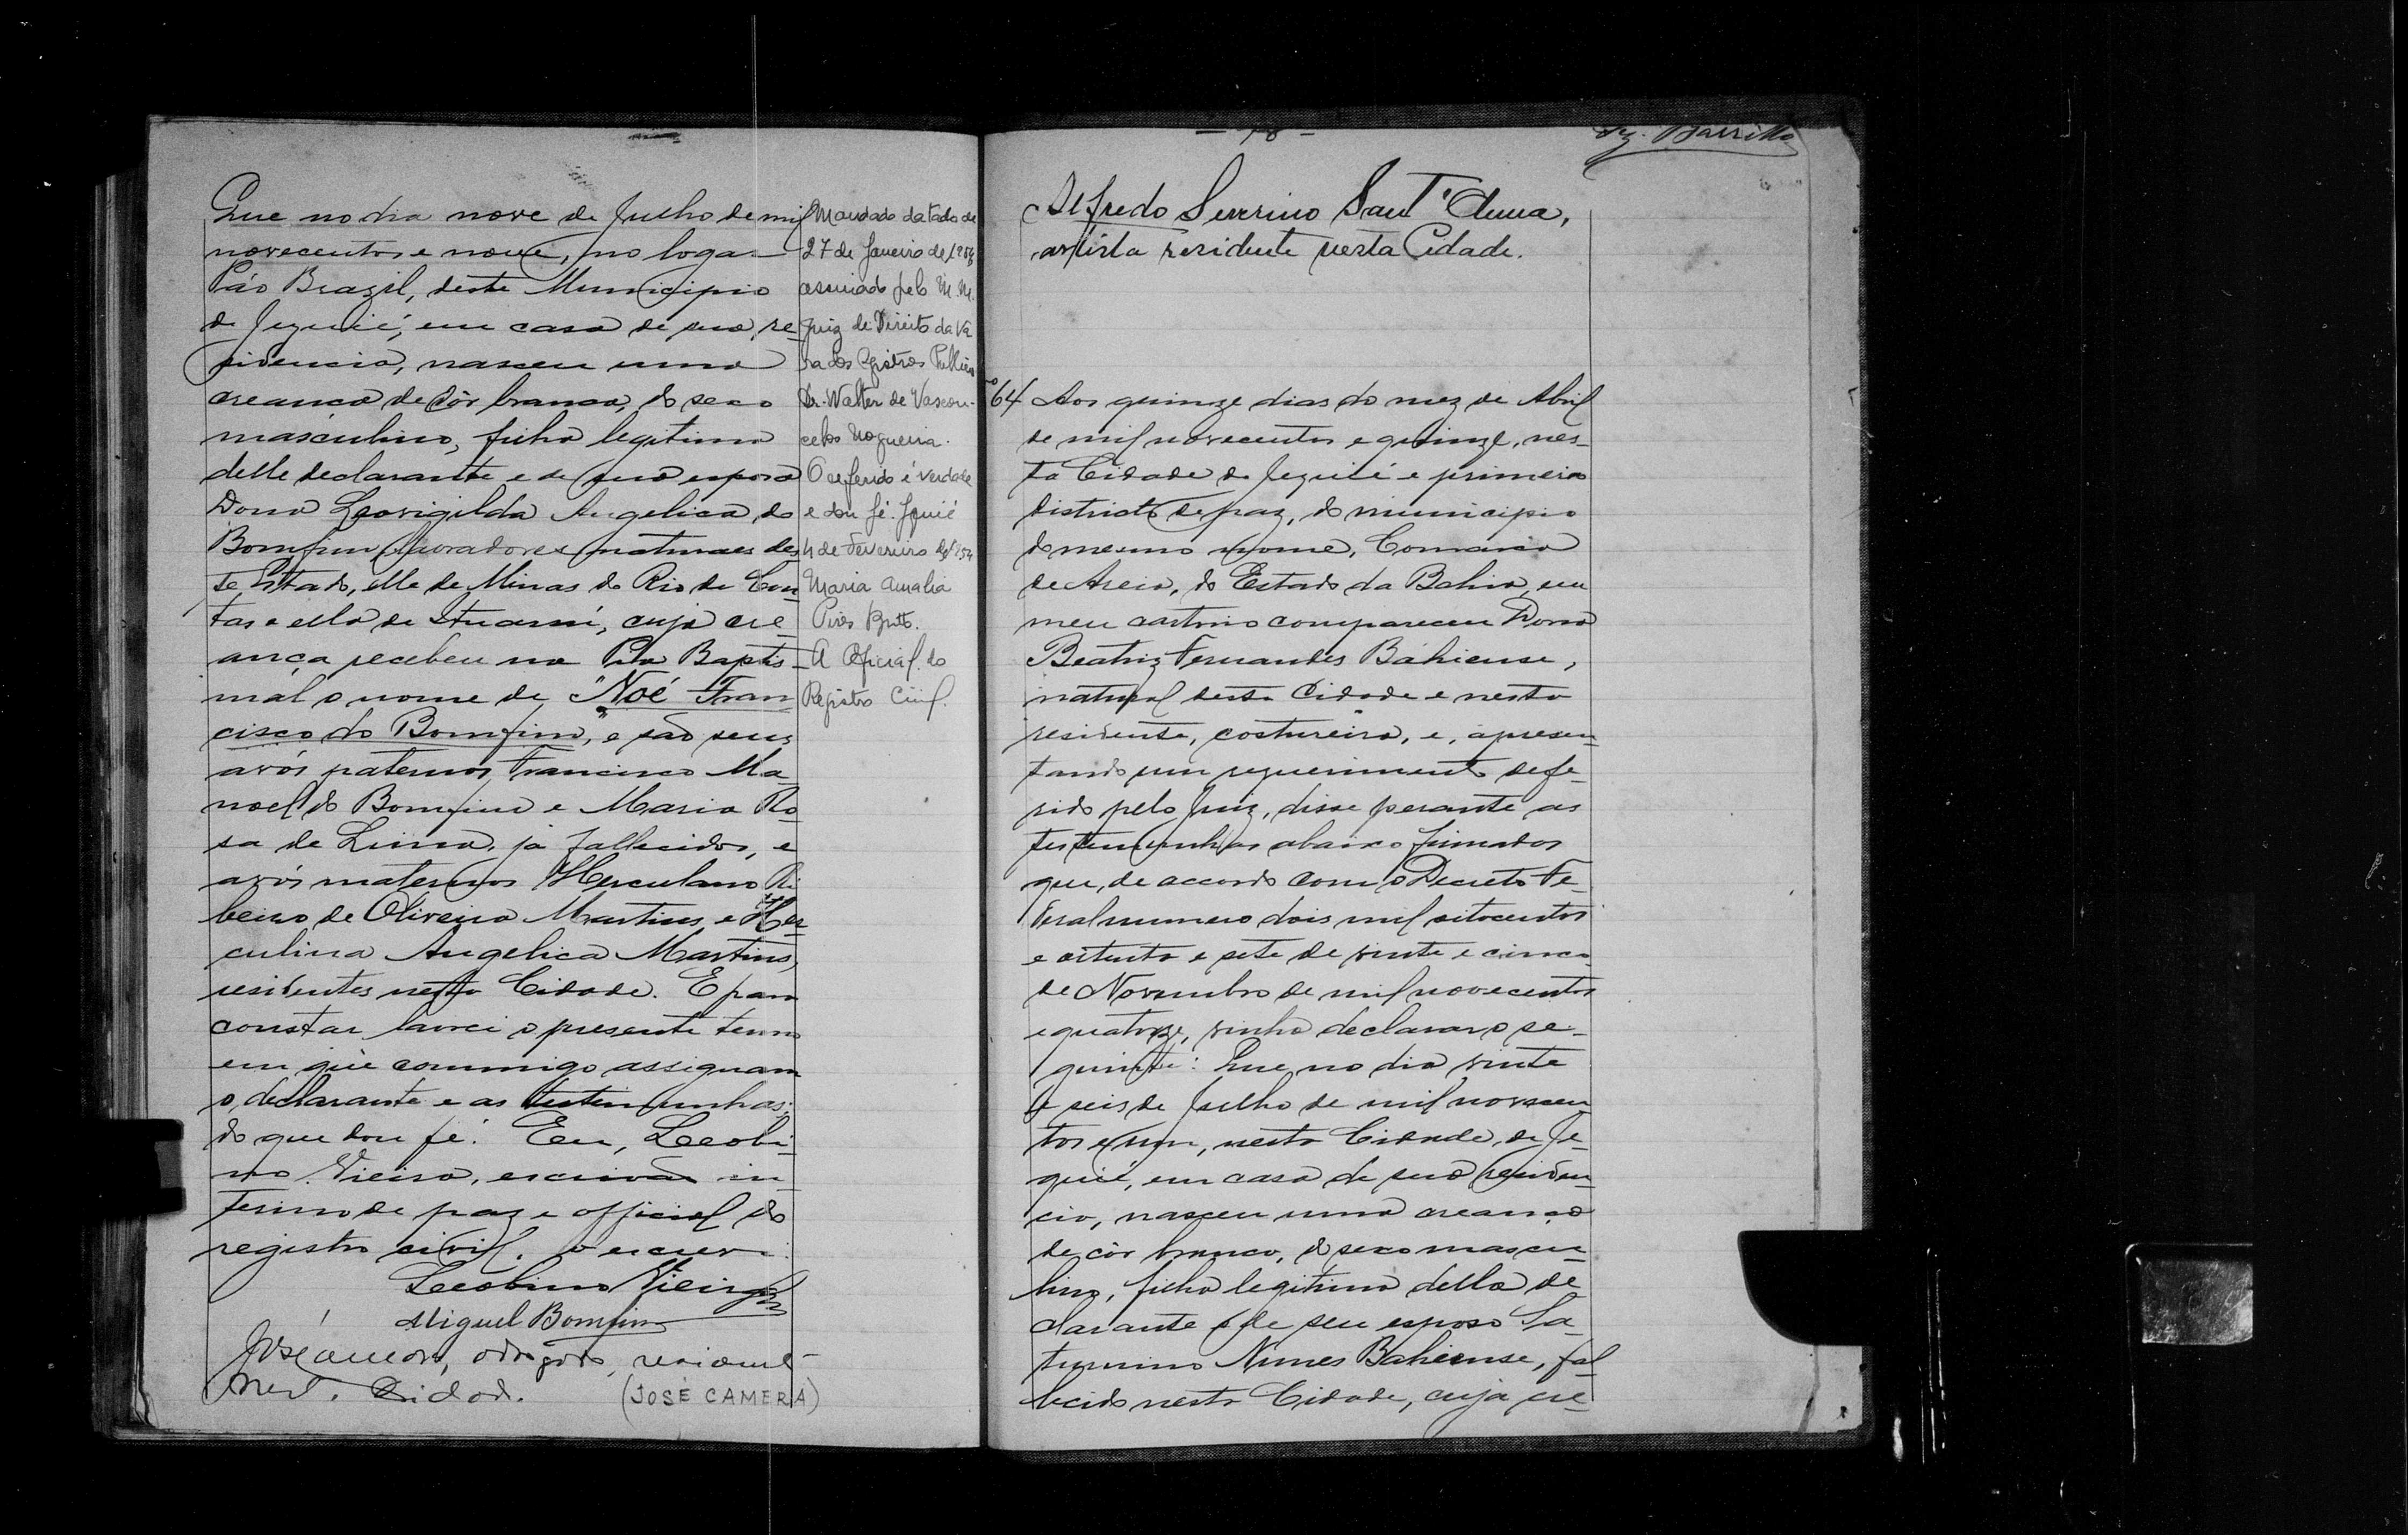 Que no dia nove de Julho de mil
novecentos e nove, no logar
Páo Brazil, deste Municipio
de Jequié, em casa de sua re
sidencia, nasceu uma
creança de côr branca, do sexo
masculino, filho legitimo
delle declarante e de sua esposa
Dona Leovigilda Angelica do
Bomfim, lavradores, naturaes des
te Estado, elle de Minas do Rio de Con
tas e ella de Ituassú, cuja cre
ança recebeu na Pia Baptis
mal o nome de "Noé Fran
cisco do Bomfim", e são seus
avós paternos Francisco Ma
noel do Bomfim e Maria Ro
sa de Lima, já fallecidos, e
avós maternos Herculano Ri
beiro de Oliveira Martins e Her
culina Angelica Martins,
residentes nesta Cidade. E para
constar lavrei o presente termo
em que commigo assignam
o declarante e as testemunhas;
do que dou fé. Eu, Leobi
no Vieira, escrivão in
terino de paz e official do
registro civil, o escrevi.
Leobino Vieira
Miguel Bomfim
José Camera, residente
nest. Cidad.
(JOSÉ CAMERA)
Mandado datado de
27 de Janeiro de 1954
assinado pelo M.M.
Juiz de Direito da Va
ra dos Registros Publicos
Dr. Walter de Vascon-
celos Nogueira.
O referido é verdade
e dou fé. Jequié
4 de Fevereiro de 1954
Maria Amalia
Pires Britto.
A Oficial do
Registro Civil.
- 78 -
Alfredo Severino Sant'Anna,
artista residente nesta Cidade.
64 Aos quinze dias do mez de Abril
de mil novecentos e quinze, nes-
ta Cidade de Jequié e primeiro
districto de paz, do municipio
do mesmo nome, Comarca
de Areia, do Estado da Bahia, em
meu cartorio compareceu Dona
Beatriz Fernandes Bahiense,
natural desta Cidade e nesta
residente, costureira, e, apresen-
tando um requerimento defe-
rido pelo Juiz, disse perante as
testemunhas abaixo firmados
que, de accordo com o Decreto Fe-
deral numero dois mil oitocentos
e oitenta e sete de vinte e cinco
de Novembro de mil novecentos
e quatorze, vinha declarar o se-
guinte: Que no dia vinte
e seis de Julho de mil novecen-
tos e um, nesta Cidade, de Je-
quié, em casa de sua residen-
cia, nasceu uma creança
de côr branca, do sexo mascu-
lino, filho legitimo della de
clarante e de seu esposo Sa-
turnino Nunes Bahiense, fal
lecido nesta Cidade, cuja cre-